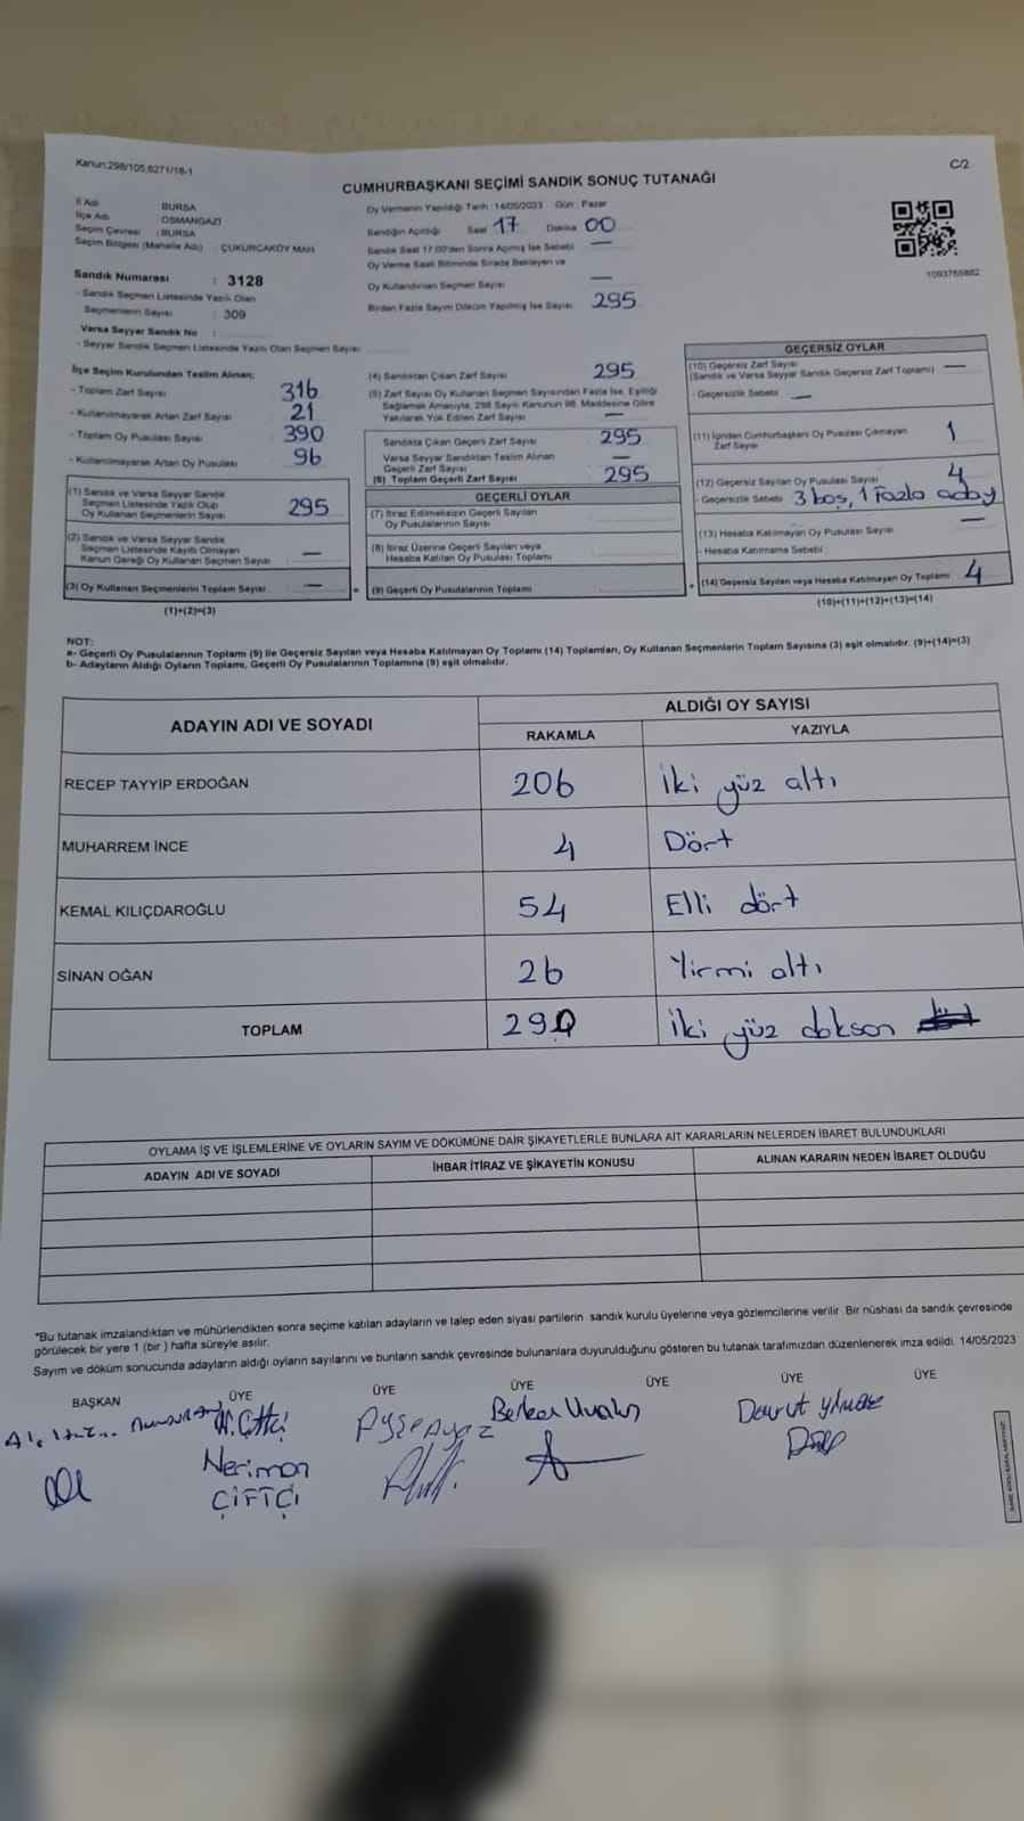 Kanun:298/105,6271/18-1
C/2
CUMHURBAŞKANI SEÇİMİ SANDIK SONUÇ TUTANAĞI
İl Adı BURSA
İlçe Adı OSMANGAZİ
Seçim Çevresi : BURSA
Seçim Bölgesi (Mahalle Adı) ÇUKURCAKÖY MAH
Sandık Numarası : 3128
- Sandık Seçmen Listesinde Yazılı Olan
Seçmenlerin Sayısı : 309
Varsa Seyyar Sandık No :
- Seyyar Sandık Seçmen Listesinde Yazılı Olan Seçmen Sayısı
Oy Vermenin Yapıldığı Tarih : 14/05/2023 Gün : Pazar
Sandığın Açıldığı Saat 17 Dakika 00
Sandık Saat 17.00'den Sonra Açılmış İse Sebebi —
Oy Verme Saati Bitiminde Sırada Bekleyen ve
Oy Kullandırılan Seçmen Sayısı —
Birden Fazla Sayım Döküm Yapılmış İse Sayısı 295
1093765882
İlçe Seçim Kurulundan Teslim Alınan;
- Toplam Zarf Sayısı 316
- Kullanılmayarak Artan Zarf Sayısı 21
- Toplam Oy Pusulası Sayısı 390
- Kullanılmayarak Artan Oy Pusulası 96
(1) Sandık ve Varsa Seyyar Sandık
Seçmen Listesinde Yazılı Olup
Oy Kullanan Seçmenlerin Sayısı 295
(2) Sandık ve Varsa Seyyar Sandık
Seçmen Listesinde Kayıtlı Olmayan
Kanun Gereği Oy Kullanan Seçmen Sayısı —
(3) Oy Kullanan Seçmenlerin Toplam Sayısı —
(1)+(2)=(3)
(4) Sandıktan Çıkan Zarf Sayısı 295
(5) Zarf Sayısı Oy Kullanan Seçmen Sayısından Fazla İse, Eşitliği
Sağlamak Amacıyla, 298 Sayılı Kanunun 98. Maddesine Göre
Yakılarak Yok Edilen Zarf Sayısı —
Sandıkta Çıkan Geçerli Zarf Sayısı 295
Varsa Seyyar Sandıktan Teslim Alınan
Geçerli Zarf Sayısı —
(6) Toplam Geçerli Zarf Sayısı 295
GEÇERLİ OYLAR
(7) İtiraz Edilmeksizin Geçerli Sayılan
Oy Pusulalarının Sayısı
(8) İtiraz Üzerine Geçerli Sayılan veya
Hesaba Katılan Oy Pusulası Toplamı
(9) Geçerli Oy Pusulalarının Toplamı
GEÇERSİZ OYLAR
(10) Geçersiz Zarf Sayısı
(Sandık ve Varsa Seyyar Sandık Geçersiz Zarf Toplamı) —
- Geçersizlik Sebebi —
(11) İçinden Cumhurbaşkanı Oy Pusulası Çıkmayan
Zarf Sayısı 1
(12) Geçersiz Sayılan Oy Pusulası Sayısı 4
- Geçersizlik Sebebi 3 boş, 1 fazla aday
(13) Hesaba Katılmayan Oy Pusulası Sayısı —
- Hesaba Katılmama Sebebi
(14) Geçersiz Sayılan veya Hesaba Katılmayan Oy Toplamı 4
(10)+(11)+(12)+(13)=(14)
NOT:
a- Geçerli Oy Pusulalarının Toplamı (9) ile Geçersiz Sayılan veya Hesaba Katılmayan Oy Toplamı (14) Toplamları, Oy Kullanan Seçmenlerin Toplam Sayısına (3) eşit olmalıdır. (9)+(14)=(3)
b- Adayların Aldığı Oyların Toplamı, Geçerli Oy Pusulalarının Toplamına (9) eşit olmalıdır.
ADAYIN ADI VE SOYADI
ALDIĞI OY SAYISI
RAKAMLA
YAZIYLA
RECEP TAYYİP ERDOĞAN 206 İki yüz altı
MUHARREM İNCE 4 Dört
KEMAL KILIÇDAROĞLU 54 Elli dört
SİNAN OĞAN 26 Yirmi altı
TOPLAM 290 İki yüz doksan
OYLAMA İŞ VE İŞLEMLERİNE VE OYLARIN SAYIM VE DÖKÜMÜNE DAİR ŞİKAYETLERLE BUNLARA AİT KARARLARIN NELERDEN İBARET BULUNDUKLARI
ADAYIN ADI VE SOYADI
İHBAR İTİRAZ VE ŞİKAYETİN KONUSU
ALINAN KARARIN NEDEN İBARET OLDUĞU
"Bu tutanak imzalandıktan ve mühürlendikten sonra seçime katılan adayların ve talep eden siyasi partilerin sandık kurulu üyelerine veya gözlemcilerine verilir. Bir nüshası da sandık çevresinde
görülecek bir yere 1 (bir ) hafta süreyle asılır.
Sayım ve döküm sonucunda adayların aldığı oyların sayılarını ve bunların sandık çevresinde bulunanlara duyurulduğunu gösteren bu tutanak tarafımızdan düzenlenerek imza edildi. 14/05/2023
BAŞKAN ÜYE ÜYE ÜYE ÜYE ÜYE ÜYE
N. Çiftçi
Nerimon
ÇİFTÇİ
Ayşe Ayaz
Davut Yılmaz